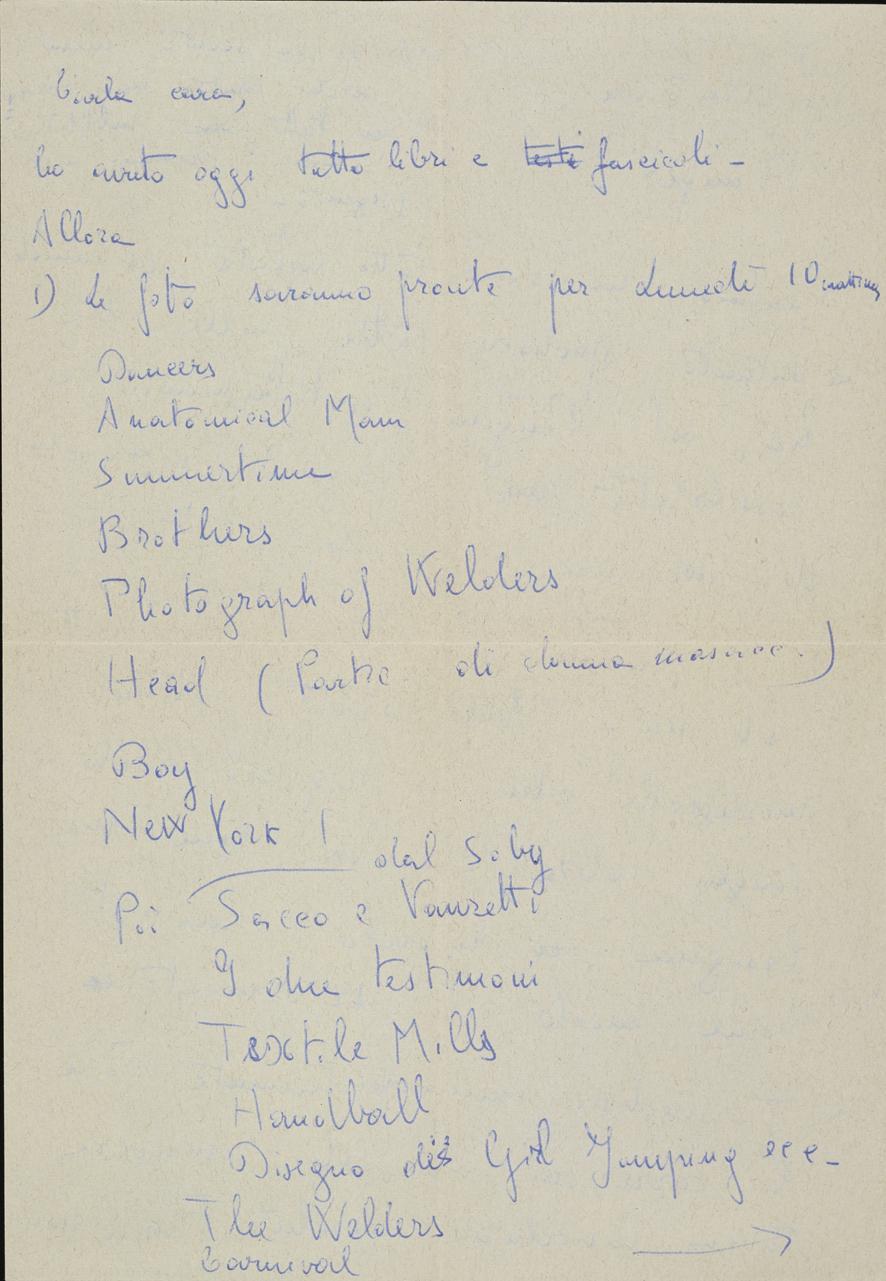 Carla cara,
ho avuto oggi tutto libri e testi fascicoli -
Allora
1) Le foto saranno pronte per Lunedì 10 mattina
Dancers
Anatomical Man
Summertime
Brothers
Photograph of Welders
Head (Parte di donna )
Boy
New York 1
dal Soby
Poi Sacco e Vanzetti
I due testimoni
Textile Mills
Handball
Disegno di Girl Jumping ecc-
The Welders
Carnival